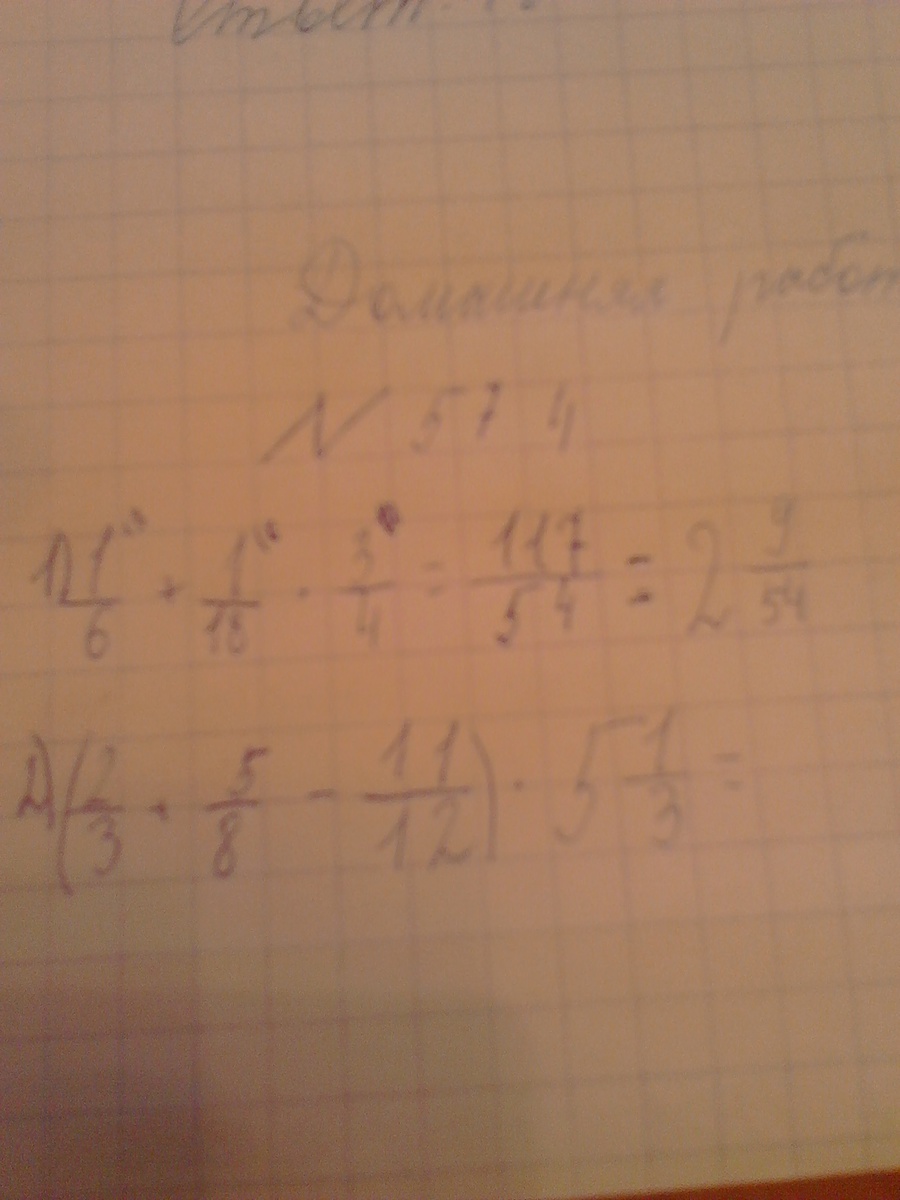 Ответ:
Домашняя работ
N 574
1) 1/6 + 1/18 · 3/4 = 117/54 = 2 9/54
2) (2/3 + 5/8 - 11/12) · 5 1/3 =